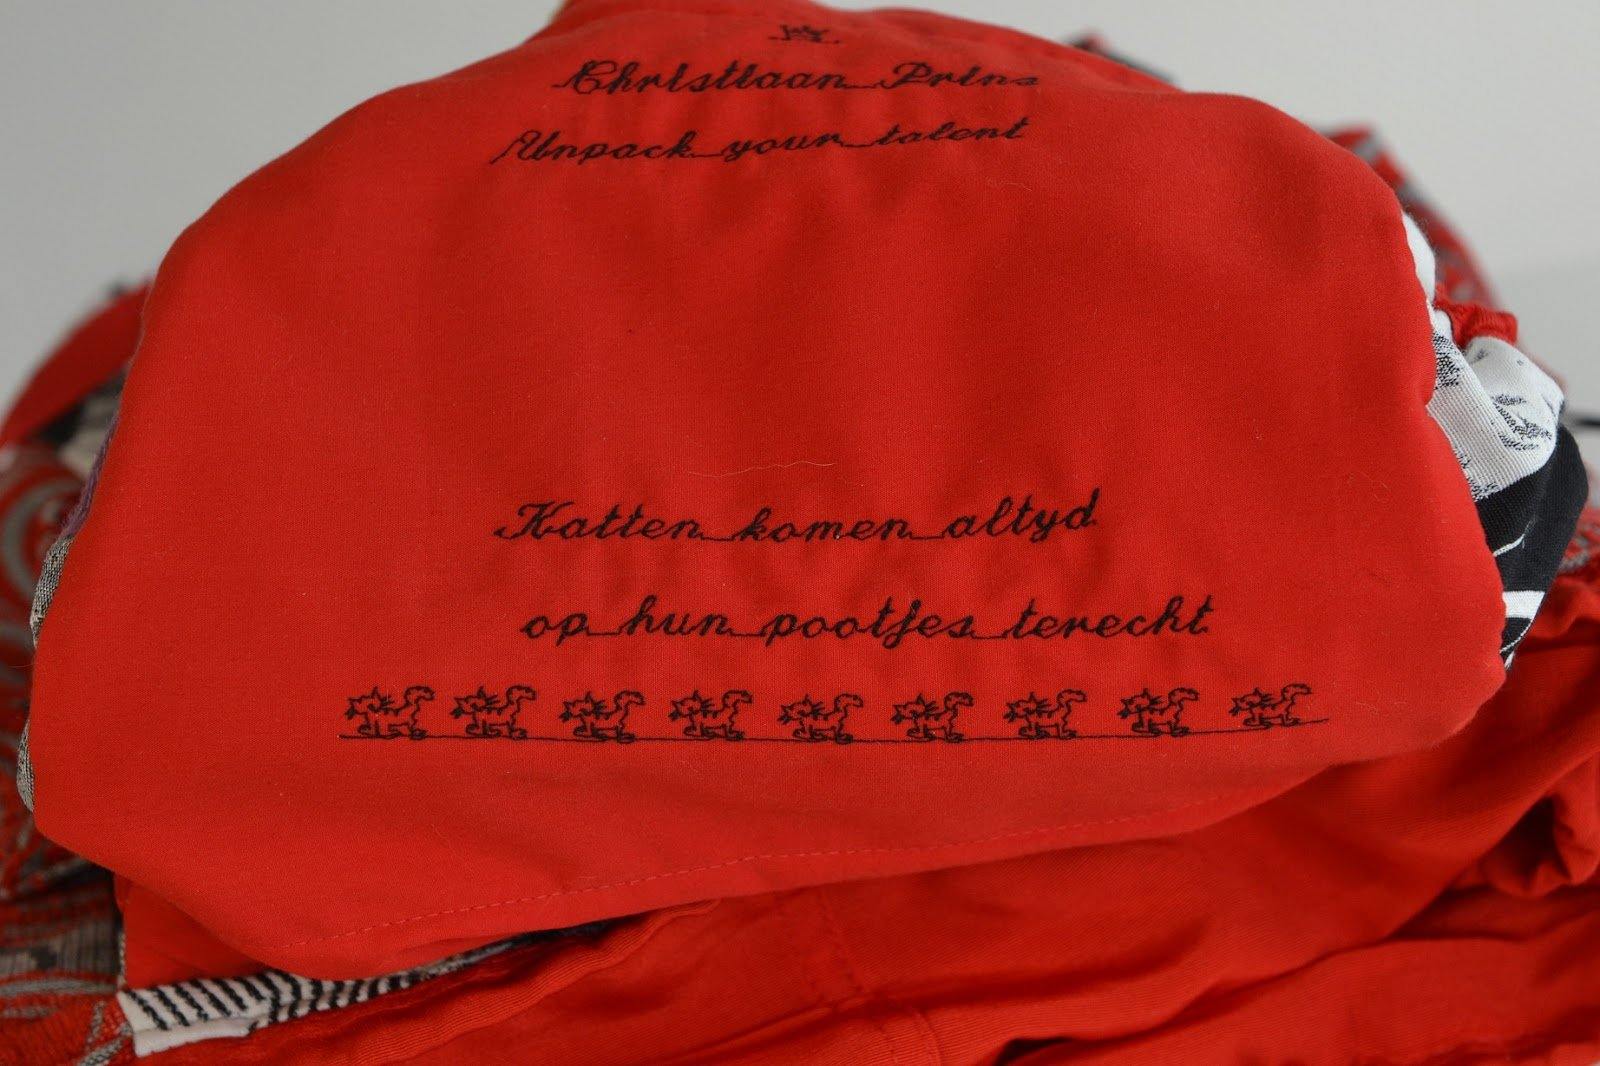 Christiaan Prins
Unpack your talent
Katten komen altyd
op hun pootjes terecht